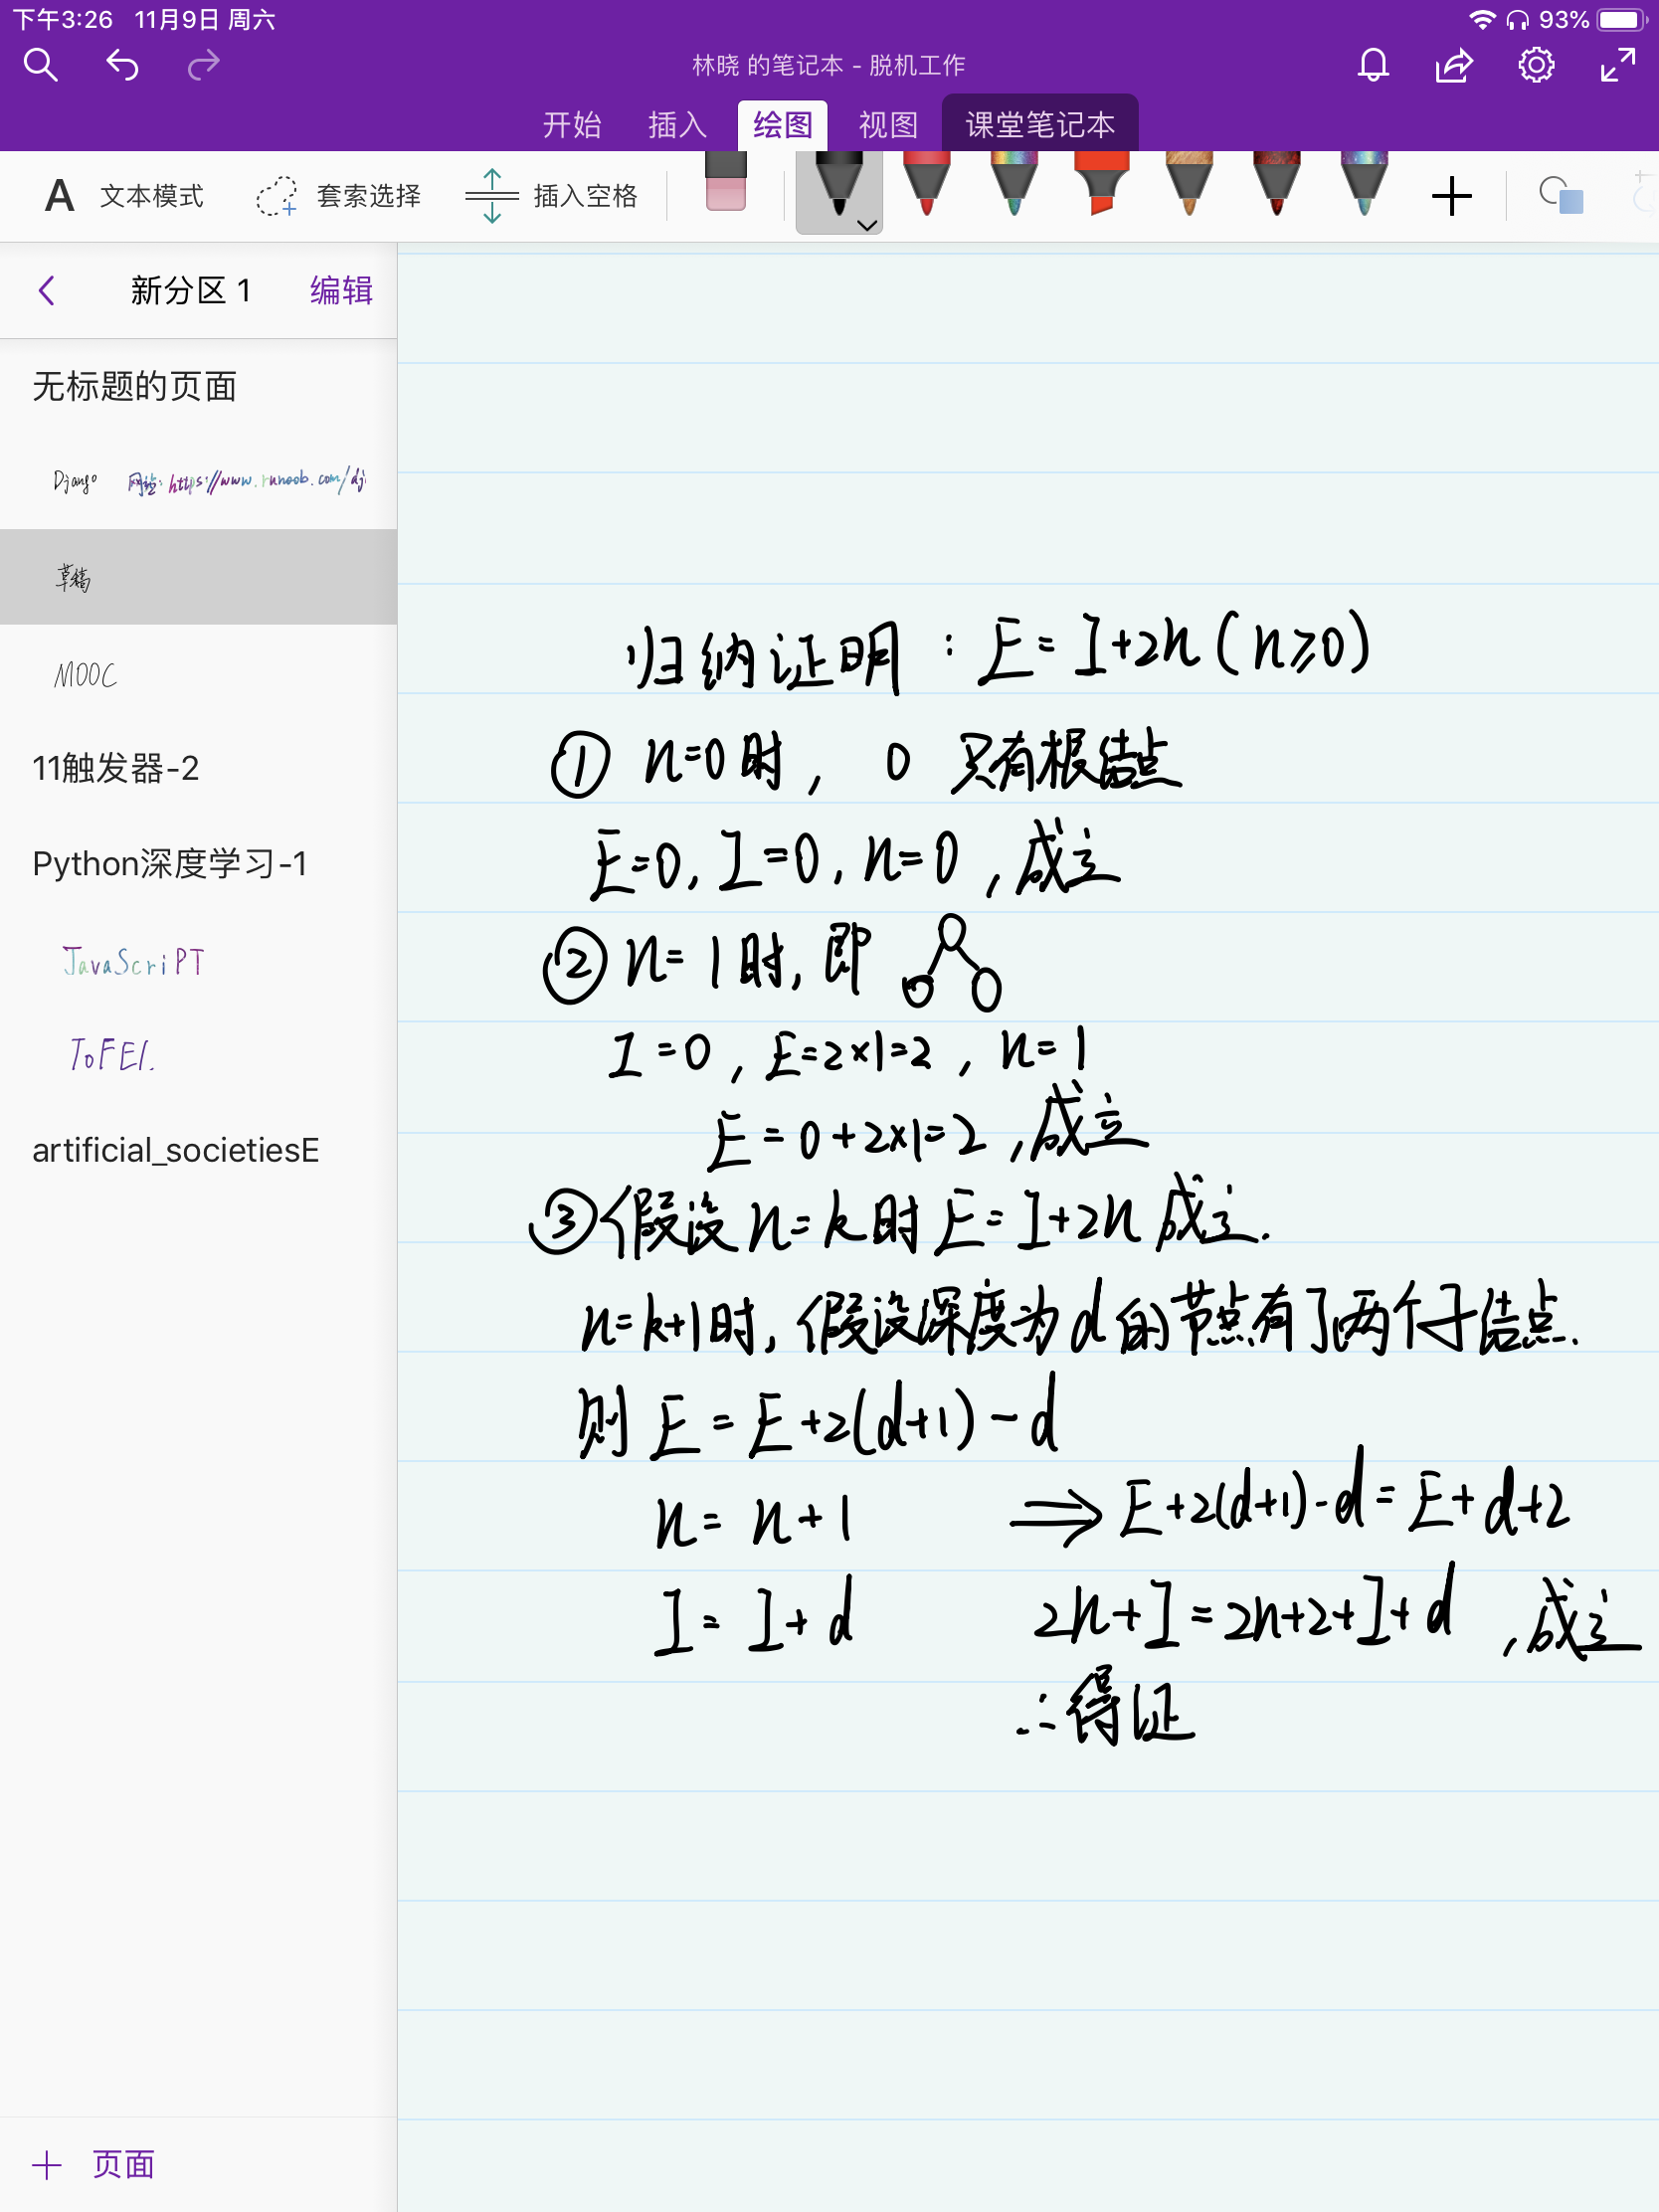 下午3:26 11月9日 周六 93%
林晓 的笔记本 - 脱机工作
开始 插入 绘图 视图 课堂笔记本
A 文本模式 套索选择 插入空格
新分区 1 编辑
无标题的页面
Django 网址: https://www.runoob.com/dj
草稿
MOOC
11触发器-2
Python深度学习-1
JavaScriPT
ToFEL
artificial_societiesE
页面
归纳证明:E=I+2n(n≥0)
① n=0时, 0 只有根结点
E=0, I=0, n=0, 成立
② n=1时, 即
I=0, E=2×1=2, n=1
E=0+2×1=2, 成立
③ 假设n=k时E=I+2n成立.
n=k+1时, 假设深度为d的节点有了两个子结点.
则 E=E+2(d+1)-d
n=n+1 ⇒ E+2(d+1)-d=E+d+2
I=I+d 2n+I=2n+2+I+d, 成立
∴得证